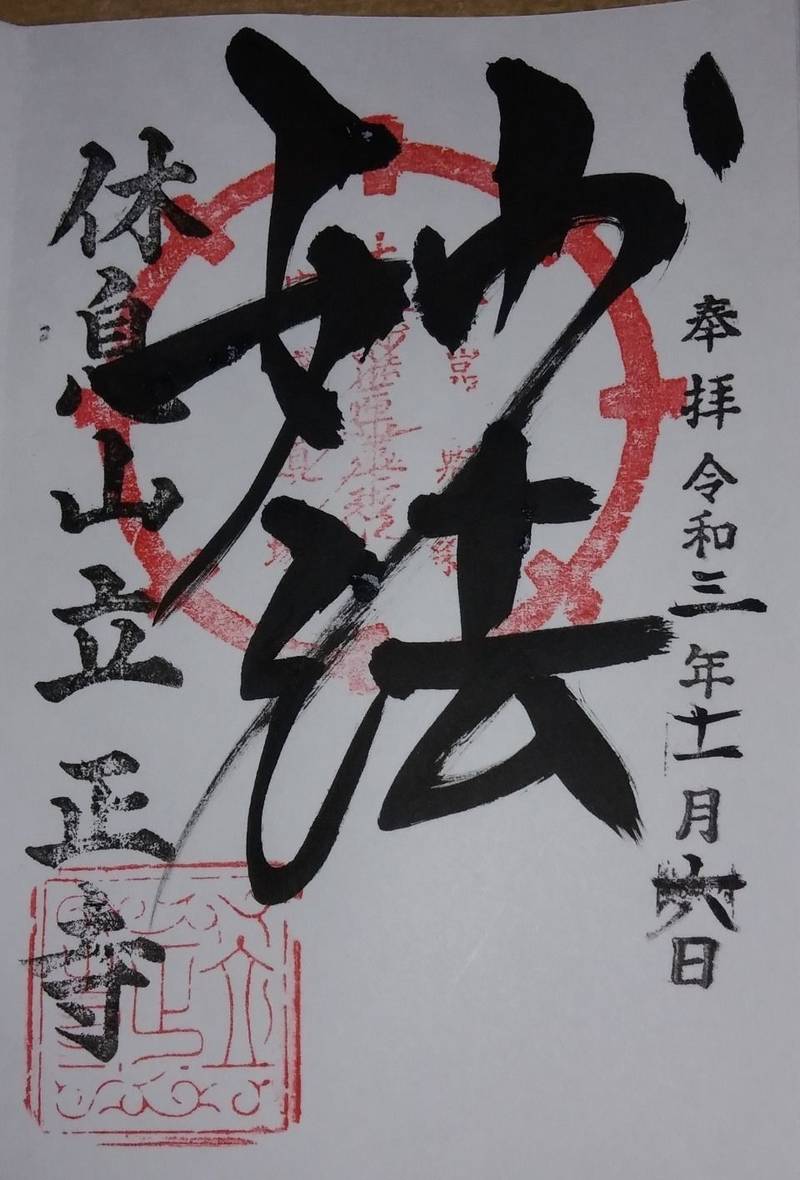 奉拝 令和三年十一月六日
妙法
休息山立正寺